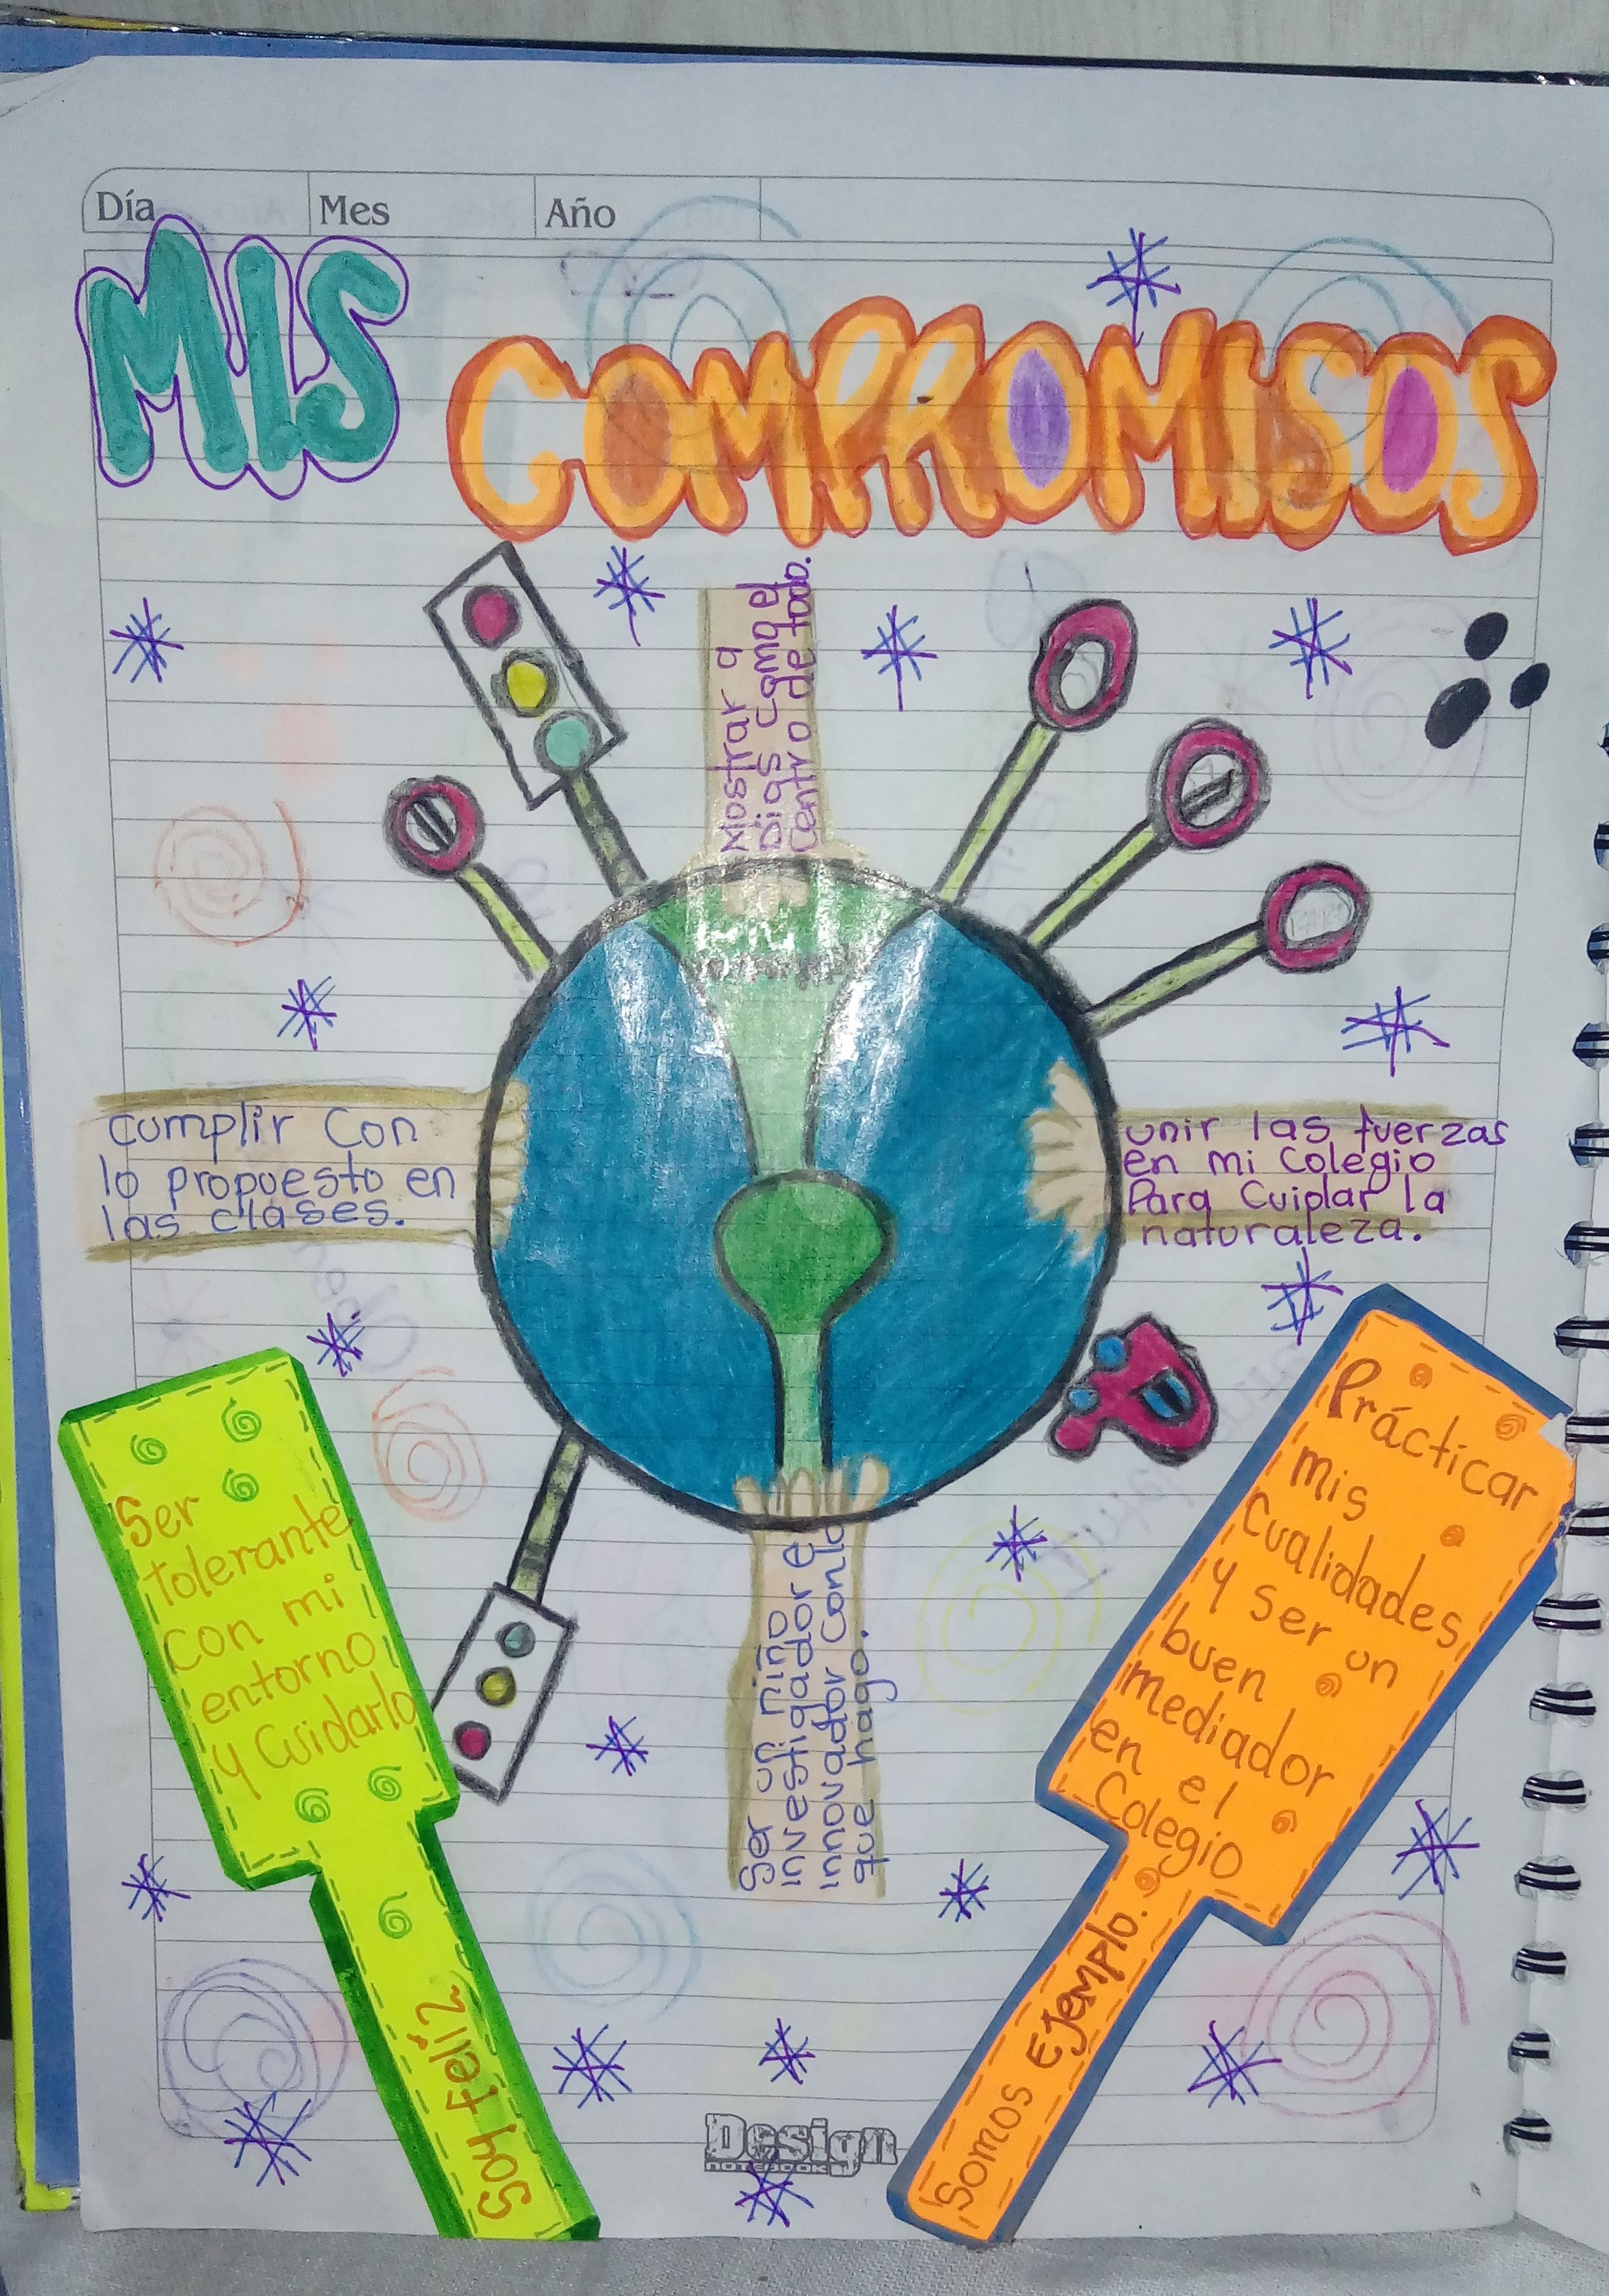 Día Mes Año
MIS
COMPROMISOS
Mostrar a
Dias como el
Centro de todo.
cumplir Con
lo propuesto en
las clases.
unir las fuerzas
en mi Colegio
Para Cuiplar la
naturaleza.
Ser un niño
investigador e
innovador con lo
que hago.
Ser
tolerante
con mi
entorno
y Cuidarlo
Soy feliz
Prácticar
mis
Cualidades
y ser un
buen
mediador
en el
Colegio
Somos Ejemplo.
Design
NOTEBOOK